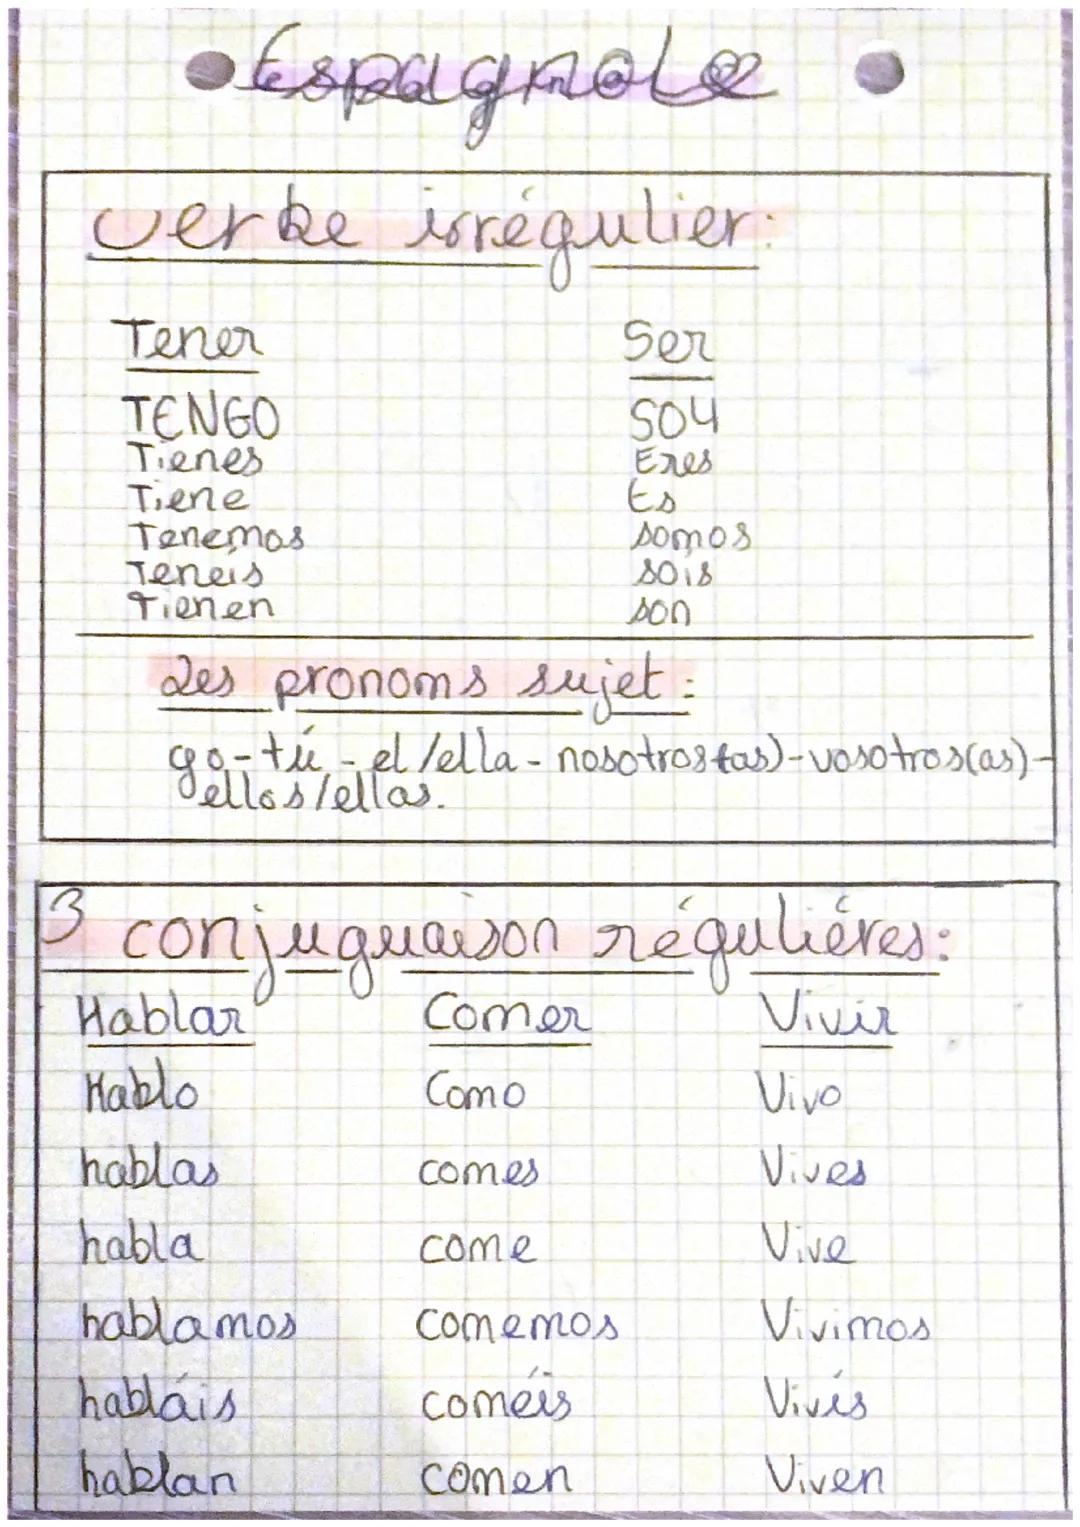 Espagnole
Verbe irrégulier:
Tener Ser
TENGO SOY
Tienes Eres
Tiene Es
Tenemos somos
Tenéis sois
Tienen son
Les pronoms sujet:
yo-tú-el/ella-nosotros(as)-vosotros(as)-
ellos/ellas.
3 conjuguaison réguliéres:
Hablar Comer Vivir
Hablo Como Vivo
hablas comes Vives
habla come Vive
hablamos comemos Vivimos
habláis coméis Vivís
hablan comen Viven